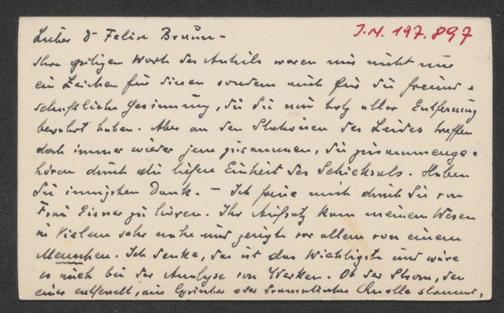 Lieber Dr Felix Braun –
I.N. 197.897
Ihre gütigen Worte des Anteils waren mir nicht nur
ein Zeichen für diesen sondern auch für die freund-
schaftliche Gesinnung, die Sie mir trotz aller Entfernung
bewahrt haben. Aber an den Stationen des Leides treffen
doch immer wieder jene zusammen, die zusammenge-
hören durch die tiefere Einheit des Schicksals. Haben
Sie innigsten Dank. – Ich freue mich durch Sie von
Frau Eisner zu hören. Ihr Aufsatz kam meinem Wesen
in Vielem sehr nahe und zeugte vor allem von einem
Menschen. Ich denke, das ist das Wichtigste und wäre
es auch bei der Analyse von Werken. Ob der Strom, der
einen entfernt, aus lyrischer oder dramatischer Quelle stammt,